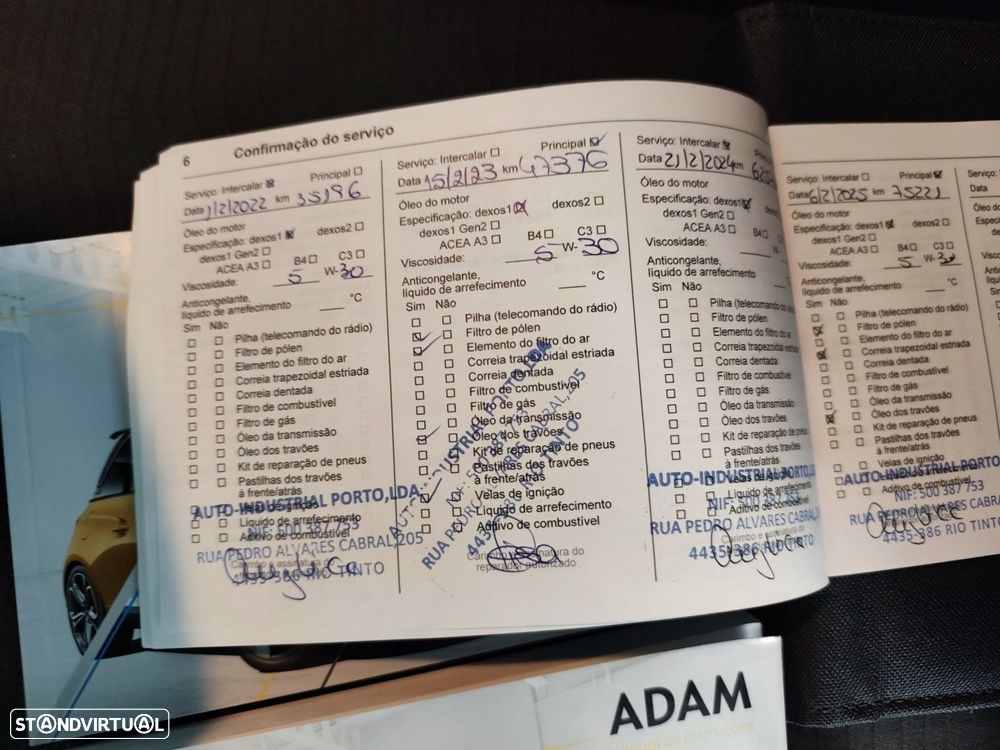 6 Confirmação do serviço
Serviço: Intercalar Principal
Data 1/2/2022 km 35196
Óleo do motor
Especificação: dexos1 dexos2
dexos1 Gen2
ACEA A3 B4 C3
Viscosidade: 5 W- 30
Anticongelante,
líquido de arrefecimento °C
Sim Não
Pilha (telecomando do rádio)
Filtro de pólen
Elemento do filtro do ar
Correia trapezoidal estriada
Correia dentada
Filtro de combustível
Filtro de gás
Óleo da transmissão
Óleo dos travões
Kit de reparação de pneus
Pastilhas dos travões
à frente/atrás
AUTO-INDUSTRIAL PORTO,LDA.
Líquido de arrefecimento
NIF: 500 387 753
Aditivo de combustível
RUA PEDRO ALVARES CABRAL,205
4435-386 RIO TINTO
Serviço: Intercalar Principal
Data 15/2/23 km 47376
Óleo do motor
Especificação: dexos1 dexos2
dexos1 Gen2
ACEA A3 B4 C3
Viscosidade: 5 W- 30
Anticongelante,
líquido de arrefecimento °C
Sim Não
Pilha (telecomando do rádio)
Filtro de pólen
Elemento do filtro do ar
Correia trapezoidal estriada
Correia dentada
Filtro de combustível
Filtro de gás
Óleo da transmissão
Óleo dos travões
Kit de reparação de pneus
Pastilhas dos travões
à frente/atrás
Velas de ignição
Líquido de arrefecimento
Aditivo de combustível
Carimbo e assinatura do
reparador autorizado
Serviço: Intercalar
Data 21/2/2024 km
Óleo do motor
Especificação: dexos1
dexos1 Gen2
ACEA A3
Viscosidade:
Anticongelante,
líquido de arrefecimento
Sim Não
Pilha (telecomando do
Filtro de pólen
Elemento do filtro do ar
Correia trapezoidal
Correia dentada
Filtro de combustível
Filtro de gás
Óleo da transmissão
Óleo dos travões
Kit de reparação de
Pastilhas dos travões
à frente/atrás
AUTO-INDUSTRIAL PORTO,
Velas de ignição
NIF: 500 387 753
RUA PEDRO ALVARES CABRAL,
4435-386 RIO TINTO
Serviço: Intercalar Principal
Data 6/2/2025 km 75221
Óleo do motor
Especificação: dexos1 dexos2
dexos1 Gen2
ACEA A3 B4 C3
Viscosidade: 5 W- 30
Anticongelante,
líquido de arrefecimento °C
Sim Não
Pilha (telecomando do rádio)
Filtro de pólen
Elemento do filtro do ar
Correia trapezoidal estriada
Correia dentada
Filtro de combustível
Filtro de gás
Óleo da transmissão
Óleo dos travões
Kit de reparação de pneus
Pastilhas dos travões
à frente/atrás
Velas de ignição
AUTO-INDUSTRIAL PORTO,LDA
Aditivo de combustível
NIF: 500 387 753
RUA PEDRO ALVARES CABRAL,
4435-386 RIO TINTO
ADAM
STANDVIRTUAL